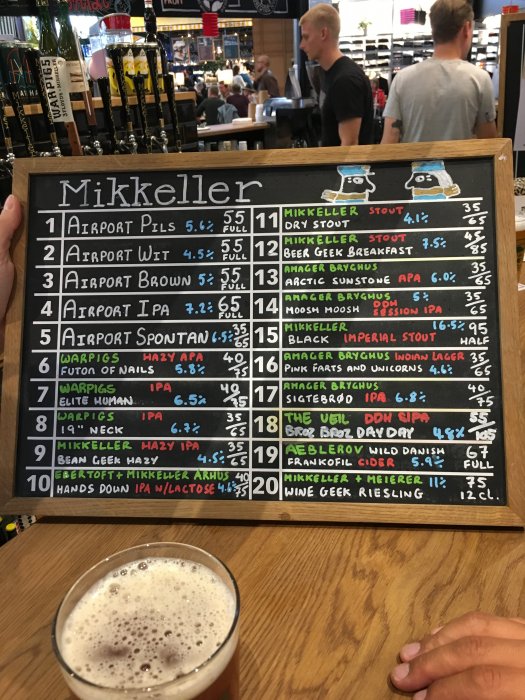 WARPIGS
Mikkeller
1 AIRPORT PILS 5.6% 55 FULL
2 AIRPORT WIT 4.5% 55 FULL
3 AIRPORT BROWN 5% 55 FULL
4 AIRPORT IPA 7.2% 65 FULL
5 AIRPORT SPONTAN 6.5% 35/65
6 WARPIGS HAZY APA 40/75
FUTON OF NAILS 5.8%
7 WARPIGS IPA 40/75
ELITE HUMAN 6.5%
8 WARPIGS IPA 35/65
19" NECK 6.7%
9 MIKKELLER HAZY IPA 35/65
BEAN GEEK HAZY 4.5%
10 EBERTOFT + MIKKELLER ÅRHUS 40/75
HANDS DOWN IPA W/LACTOSE 4.6%
11 MIKKELLER STOUT 35/65
DRY STOUT 4.1%
12 MIKKELLER STOUT 45/85
BEER GEEK BREAKFAST 7.5%
13 AMAGER BRYGHUS 35/65
ARCTIC SUNSTONE APA 6.0%
14 AMAGER BRYGHUS 5% 35/65
MOOSH MOOSH DDH SESSION IPA
15 MIKKELLER 16.5% 95 HALF
BLACK IMPERIAL STOUT
16 AMAGER BRYGHUS INDIAN LAGER 35/65
PINK FARTS AND UNICORNS 4.6%
17 AMAGER BRYGHUS 40/75
SIGTEBRØD IPA 6.8%
18 THE VEIL DDH SIPA 55/105
BROZ BROZ DAY DAY 4.8%
19 ÆBLERØV WILD DANISH 67 FULL
FRANKOFIL CIDER 5.9%
20 MIKKELLER + MEIERER 11% 75
WINE GEEK RIESLING 12 CL.